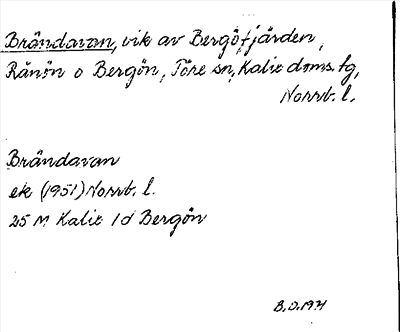 Brändavan, vik av Bergöfjärden,
Rånön o Bergön, Töre sn, Kalix doms. tg,
Norrb. l.
Brändavan
ek (1951) Norrb. l.
25 M Kalix 1d Bergön
B.O. 1971